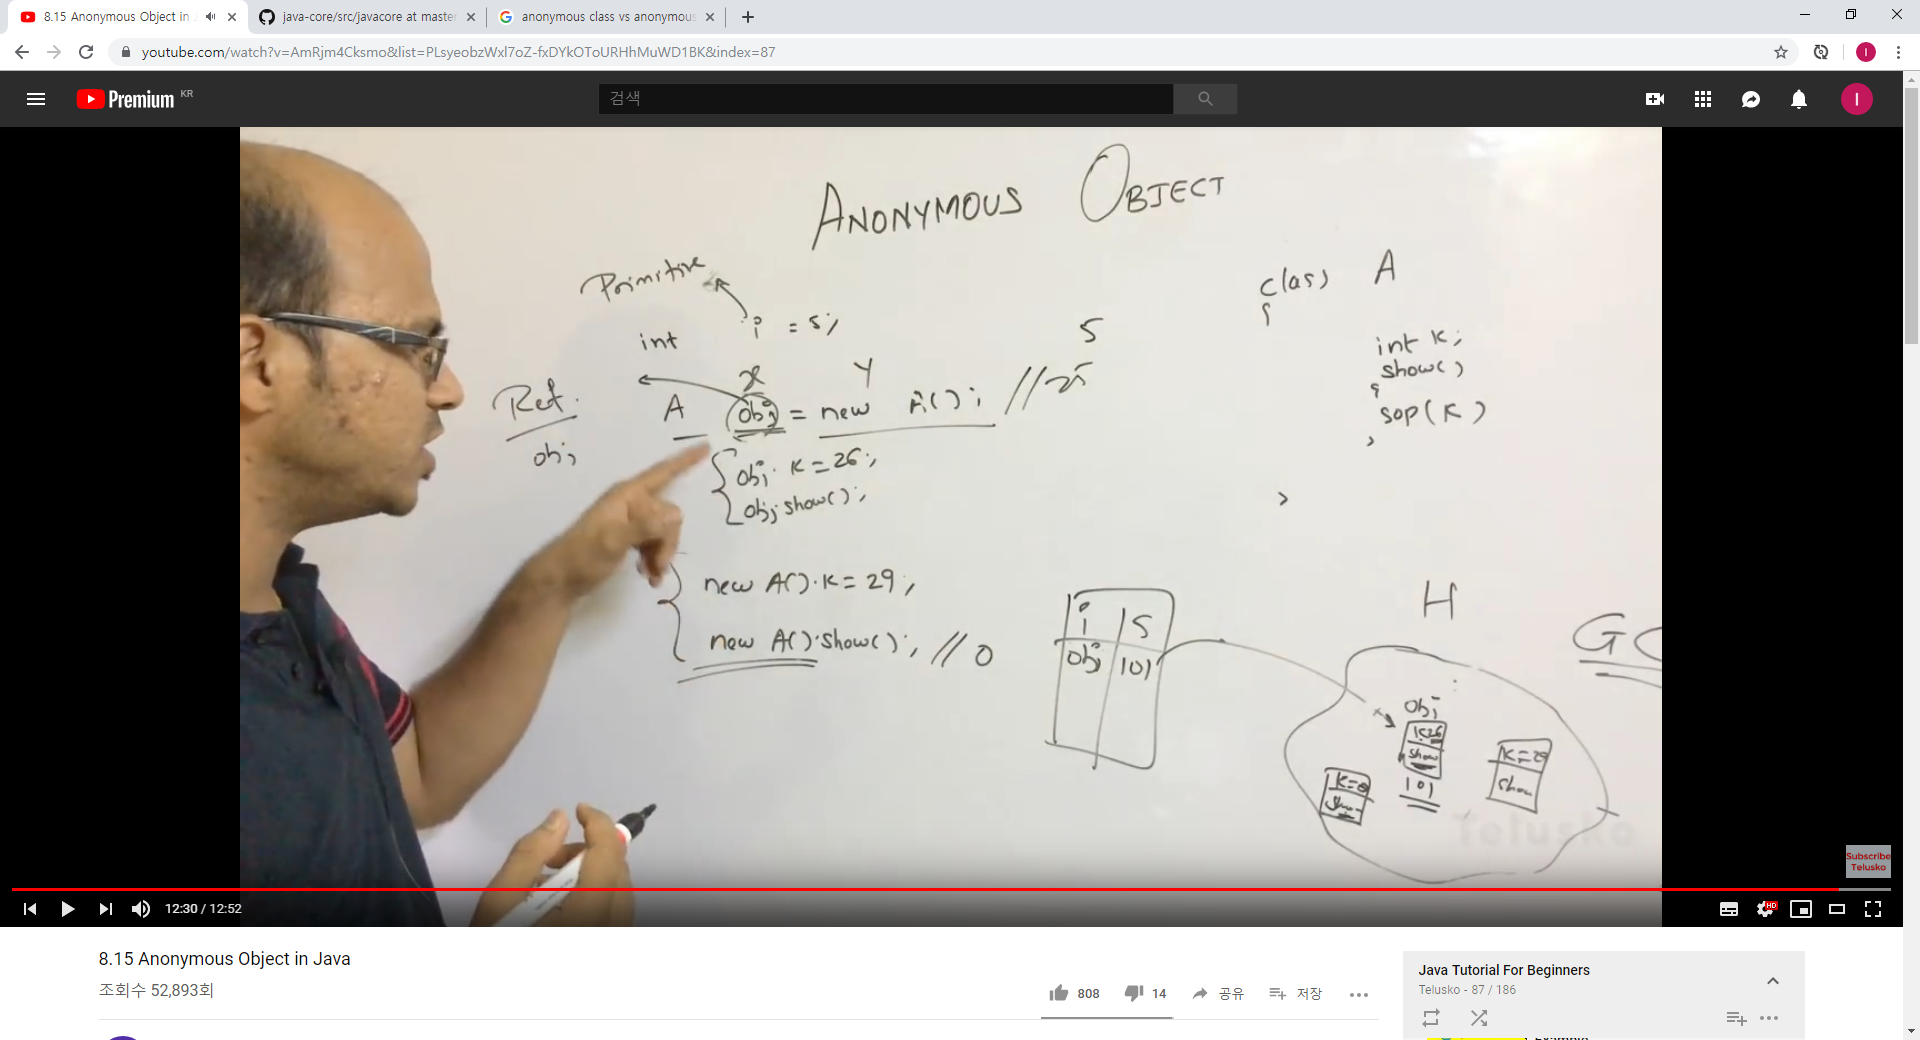 8.15 Anonymous Object in
java-core/src/javacore at master
anonymous class vs anonymous
youtube.com/watch?v=AmRjm4Cksmo&list=PLsyeobzWxl7oZ-fxDYkOToURHhMuWD1BK&index=87
I
Premium KR
검색
I
ANONYMOUS OBJECT
Primitive
class A
{
int i = 5;
5
int k;
show()
{
sop(k)
}
}
X Y
Ref.
obj
A obj = new A(); //25
obj.k=26;
obj.show();
new A().k=29;
new A().show(); //0
i 5
obj 101
H
GC
obj
k=26
show
101
k=29
show
k=0
show
Telusko
Subscribe
Telusko
12:30 / 12:52
HD
8.15 Anonymous Object in Java
조회수 52,893회
808
14
공유
저장
Java Tutorial For Beginners
Telusko - 87 / 186